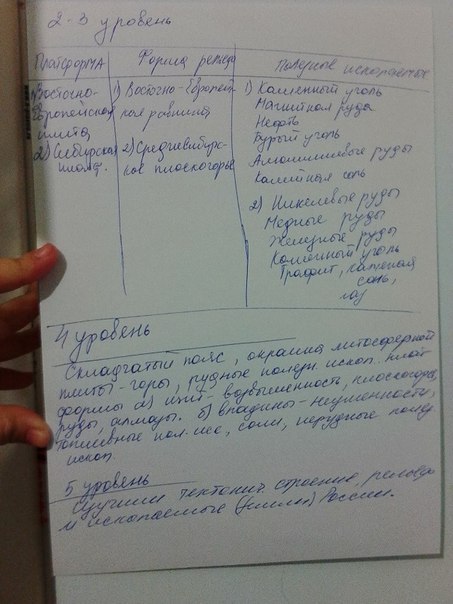 2-3 уровень
Платформа
Форма рельефа
Полезные ископаемые
1) Восточно-
Европейская
плита
2) Сибирская
платф.
1) Восточно-Европей-
ская равнина
2) Среднесибирс-
кое плоскогорье
1) Каменный уголь
Магнитная руда
Нефть
Бурый уголь
Алюминиевые руды
Калийная соль
2) Никелевые руды
Медные руды
Железные руды
Каменный уголь
Графит, каменная
соль,
газ
4 уровень
Складчатый пояс, окраина литосферной
плиты - горы, рудные полезн. ископ. плат
формы а) щит - возвышенности, плоскогорья,
руды, алмазы. б) впадины - низменности,
топливные пол. иск, соли, нерудные полез
ископ.
5 уровень
Изучили тектонич. строение, рельефа
и ископаемые (земли) России.